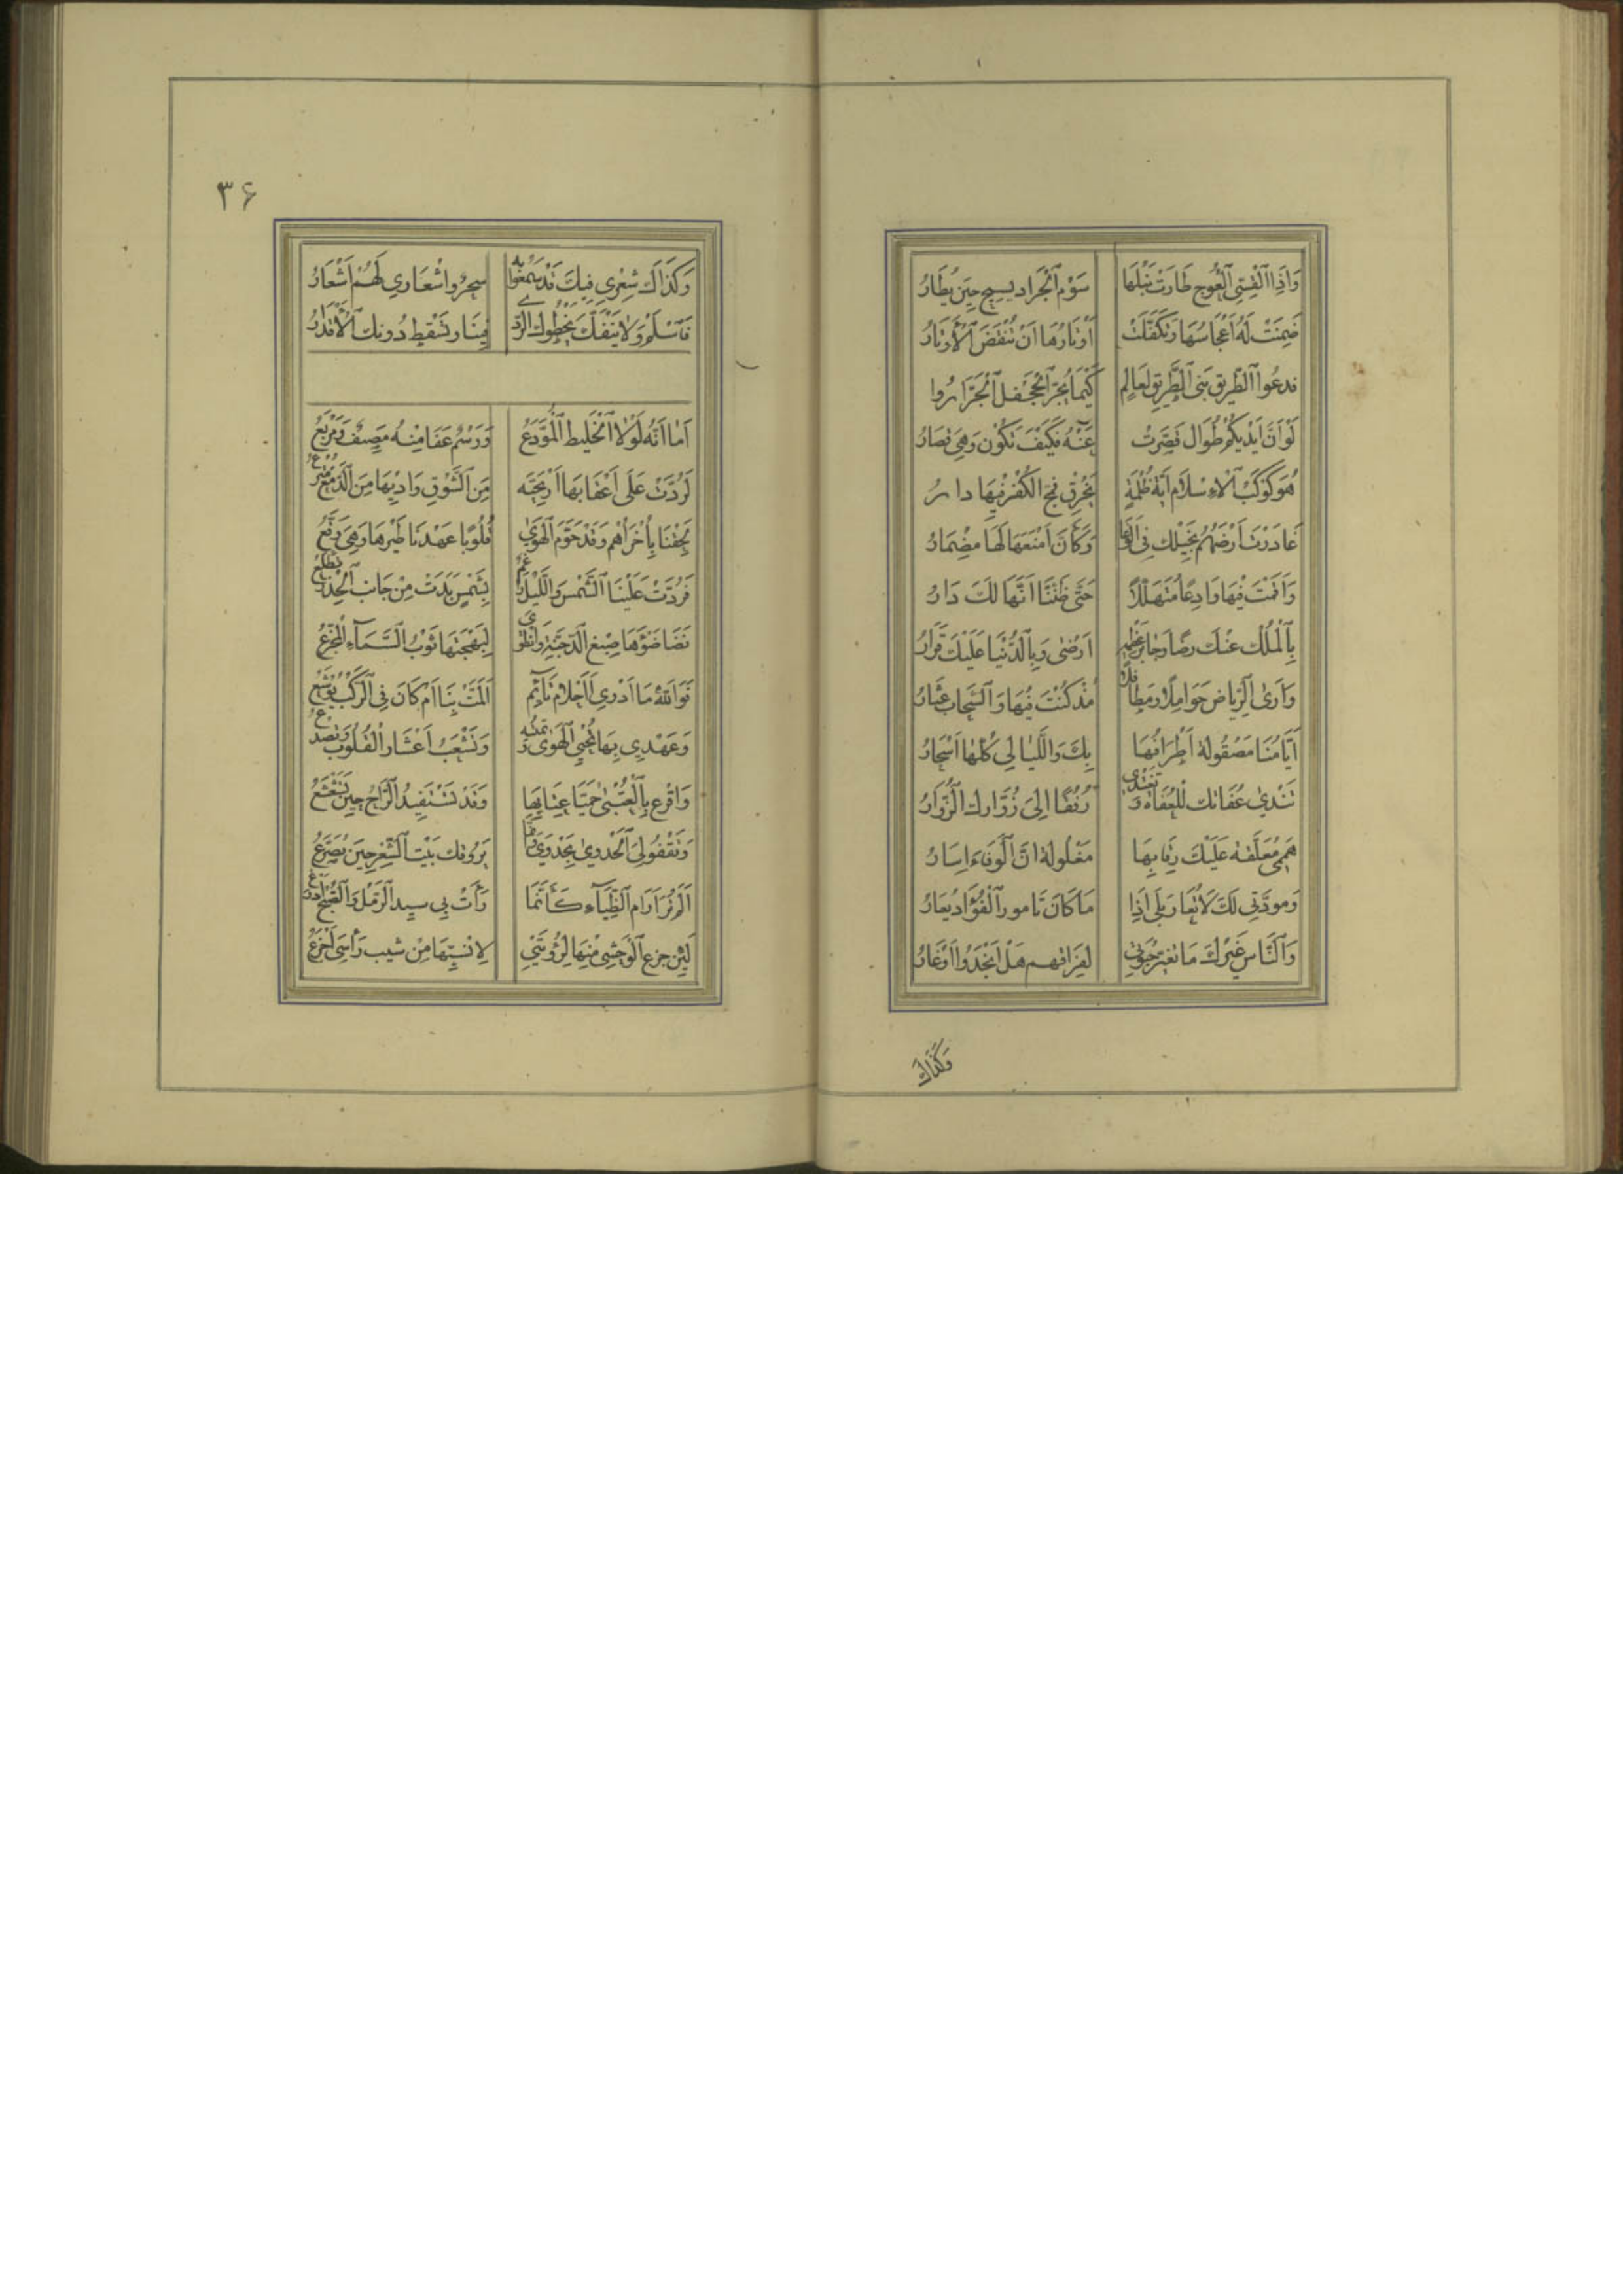 وَاِذَا ٱلْقِسِيُّ ٱلْعُوجُ طَارَتْ نَبْلُهَا سَوْمَ ٱلْجَرَادِ يسيح حِينَ يُطَارُ
ضَمِنَتْ لَهُ أَعْجَاسُهَا وَتَكَفَّلَتْ أَوْتَارُهَا أَنْ تُنْقَضَ ٱلْأَوْتَارُ
فدعوا ٱلطَّرِيقَ بَنِي ٱلطَّرِيقِ لِعَالِمٍ كَيْمَا يُجَرّ ٱلْجَحْفَلُ ٱلْجَرَّارُ
لَوْ أَنَّ أَيْدِيَكُمْ طُوَالٌ قَصَّرَتْ عَنْهُ فَكَيْفَ تَكُونُ وَهِيَ قِصَارُ
هُوَ كَوْكَبُ ٱلْاِسْلَامِ أَيَّةَ ظُلْمَةٍ يَخْرِقْ فمخ الكُفْرِ فِيهَا رَارُ
غَادَرْتَ أَرْضَهُمُ بِخَيْلِكَ فِي ٱلْوَغَا وَكَأَنَّ أَمْنَعَهَا لَهَا مِضْمَارُ
وَأَقَمْتَ فِيهَا وَادِعًا مُتَمَهِّلًا حَتَّى ظَنَنَّا أَنَّهَا لَكَ دَارُ
بِٱلْمُلْكِ عَنْكَ رِضًا وَجَابِرُ عَظْمِهِ أَرْضَى وَبِٱلدُّنْيَا عَلَيْكَ قَرَارُ
وَأَرَى ٱلرِّيَاضَ حَوَامِلًا وَمَطَافِلًا مُذْ كُنْتَ فِيهَا وَٱلسَّحَابُ عِشَارُ
أَيَّامُنَا مَصْقُولَةٌ أَطْرَافُهَا بِكَ وَاللَّيَالِي كُلُّهَا أَسْحَارُ
تَنْدَى عُفَاتُكَ لِلْعُفَاةِ وَتَغْتَدِي رُفَقًا اِلَى زُوَّارِكَ ٱلزُّوَّارُ
هِمَمِي مُعَلَّقَةٌ عَلَيْكَ رِقَابُهَا مَغْلُولَةٌ اِنَّ ٱلْوَفَاءَ اِسَارُ
وَمَوَدَّتِي لَكَ لَا تُعَارُ بَلَى اِذَا مَا كَانَ تَامُورُ ٱلْفُؤَادِ يُعَارُ
وَٱلنَّاسُ غَيْرَكَ مَا تَغَيَّرُ حَبْوَتِي لِفِرَاقِهِمْ هَلْ أَنْجَدُوا أَوْ غَارُوا
وَكَذَاكَ
۳۶
وَكَذَاكَ شِعْرِي فِيكَ قَدْ سَمِعُوا بِهِ سِحْرٌ وَاشْعَارِي لَهُمْ أَشْعَارُ
فَٱسْلَمْ وَلَا يَنْفَكُّ يَخْطُوكَ الرَّدَى فِينَا وَتَسْقُطُ دُونَكَ ٱلْأَقْدَارُ
أَمَا أَنَّهُ لَوْلَا ٱلْخَلِيطُ ٱلْمُوَدِّعُ وَرَسْمٌ عَفَا مِنْهُ مَصِيفٌ وَمَرْبَعُ
لَرُدَّتْ عَلَى أَعْقَابِهَا أَرْيَحِيَّةٌ مِنَ ٱلشَّوْقِ وَادِيهَا مِنَ ٱلدَّمْعِ مُتْرَعُ
لَحِقْنَا بِأُخْرَاهُمْ وَقَدْ حَوَّمَ ٱلْهَوَى قُلُوبًا عَهِدْنَا طَيْرَهَا وَهِيَ وُقَّعُ
فَرُدَّتْ عَلَيْنَا ٱلشَّمْسُ وَٱللَّيْلُ رَاغِمٌ بِشَمْسٍ بَدَتْ مِنْ جَانِبِ ٱلْخِدْرِ تَطْلَعُ
نَضَا ضَوْءُهَا صِبْغَ ٱلدُّجُنَّةِ وَانْطَوَى لِبَهْجَتِهَا ثَوْبُ ٱلسَّمَآءِ ٱلْمُجَزَّعُ
فَوَاللهِ مَا أَدْرِي أَأَحْلَامُ نَآئِمٍ أَلَمَّتْ بِنَا أَمْ كَانَ فِي ٱلرَّكْبِ يُوشَعُ
وَعَهْدِي بِهَا تُحْيِي ٱلْهَوَى وَتُمِيتُهُ وَتَشْعَبُ أَعْشَارَ ٱلْفُؤَادِ وَتَصْدَعُ
وَاقْرَعُ بِٱلْعُتْبَى حُمَيَّا عِتَابِهَا وَقَدْ تَسْتَقِيدُ ٱلرَّاحُ حِينَ تُشَعْشَعُ
وَتَقْفُو لِيَ ٱلْجَدْوَى بِجَدْوَى وَاِنَّمَا يَرُوقُكَ بَيْتُ ٱلشِّعْرِ حِينَ يُصَرَّعُ
أَلَمْ تَرَ أَرَامَ ٱلظِّبَآءِ كَأَنَّمَا رَأَتْ بِي سِيدَ ٱلرَّمْلِ وَٱلصُّبْحُ أَدْرَعُ
لَئِنْ جَزِعَ ٱلْوَحْشِيُّ مِنْهَا لِرُؤْيَتِي لَاِنْسِيُّهَا مِنْ شَيْبِ رَأْسِيَ أَجْزَعُ